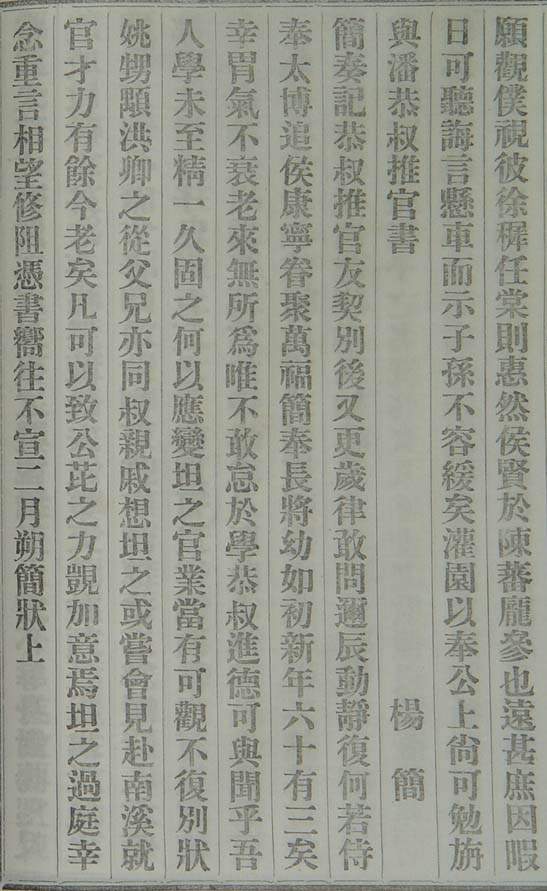 願觀僕視彼徐穉任棠則恧然侯賢於陳蕃龐參也遠甚庶因暇
日可聽誨言懸車而示子孫不容緩矣灌園以奉公上尙可勉旃
與潘恭叔推官書 楊簡
簡奏記恭叔推官友契別後又更歲律敢問邇辰動靜復何若侍
奉太博追侯康寧眷聚萬福簡奉長將幼如初新年六十有三矣
幸胃氣不衰老來無所爲唯不敢怠於學恭叔進德可與聞乎吾
人學未至精一久固之何以應變坦之官業當有可觀不復別狀
姚甥頤洪卿之從父兄亦同叔親戚想坦之或嘗會見赴南溪就
官才力有餘今老矣凡可以致公芘之力覬加意焉坦之過庭幸
念重言相望修阻憑書嚮往不宣二月朔簡狀上